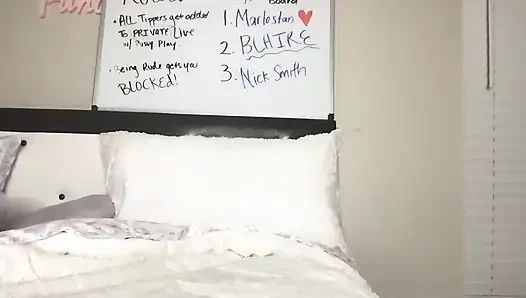 Board
• ALL Tippers get added
To PRIVATE Live
w/ Pussy Play.
• Being Rude gets you
BLOCKED!
1. Marlostan ❤
2. BLHIRE
3. Nick Smith